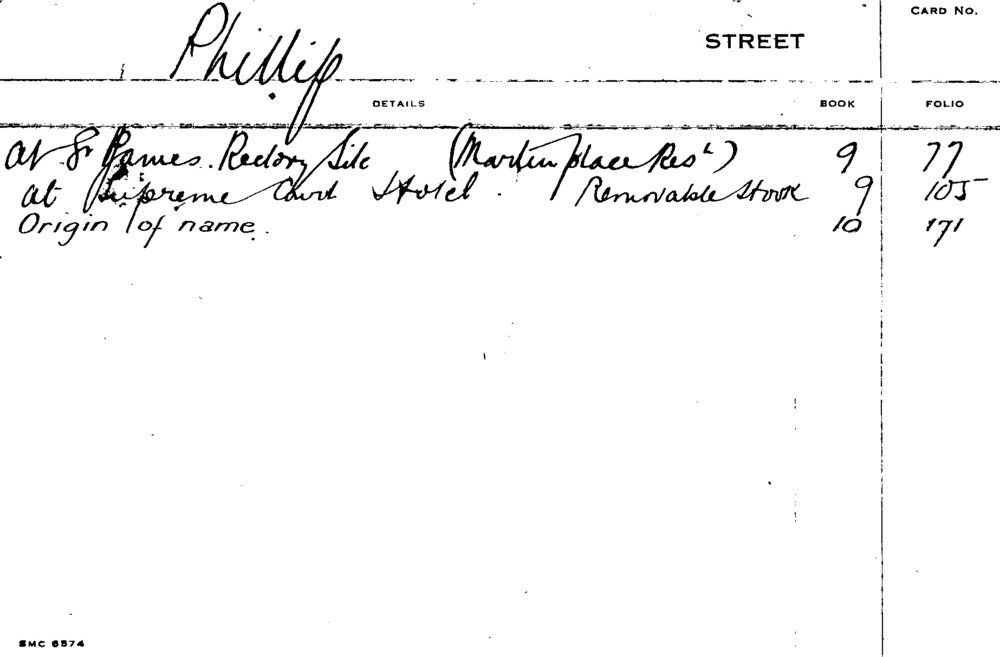 CARD NO.
Phillip STREET
DETAILS BOOK FOLIO
at St James Rectory Site (Martin place Resl) 9 77
at Supreme Court Hotel. Removable 9 105
Origin of name. 10 171
SMC 6574